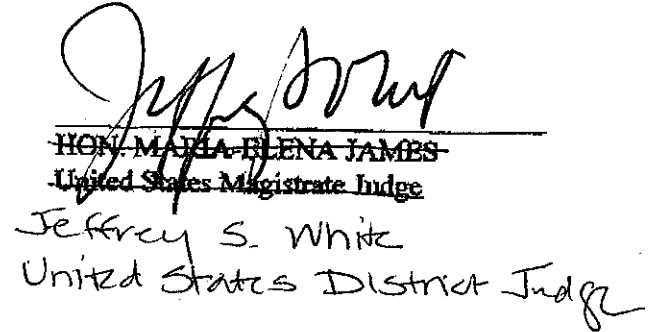 Jeffrey S White
HON. MARIA-ELENA JAMES
United States Magistrate Judge
Jeffrey S. White
United States District Judge